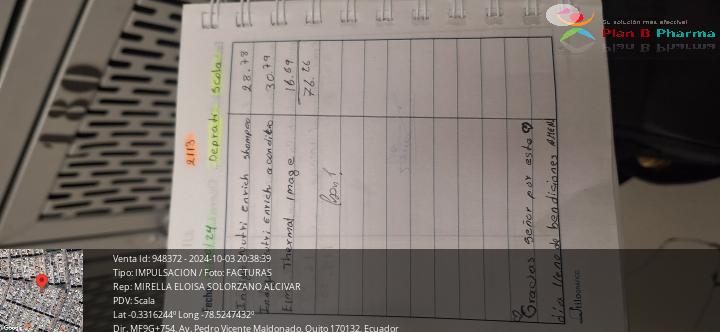 Su solución más efectiva!
Plan B Pharma
180
2113
Depratti Scala
nutri enrich shampoo 28.78
nutri enrich acondicio 30.79
Thermal Image 16.69
76.26
Gracias señor por este
día lleno de bendiciones AMEN
Venta Id: 948372 - 2024-10-03 20:38:39
Tipo: IMPULSACION / Foto: FACTURAS
Rep: MIRELLA ELOISA SOLORZANO ALCIVAR
PDV: Scala
Lat -0.3316244º Long -78.5247432º
Dir. MF9G+754, Av. Pedro Vicente Maldonado, Quito 170132, Ecuador
Google